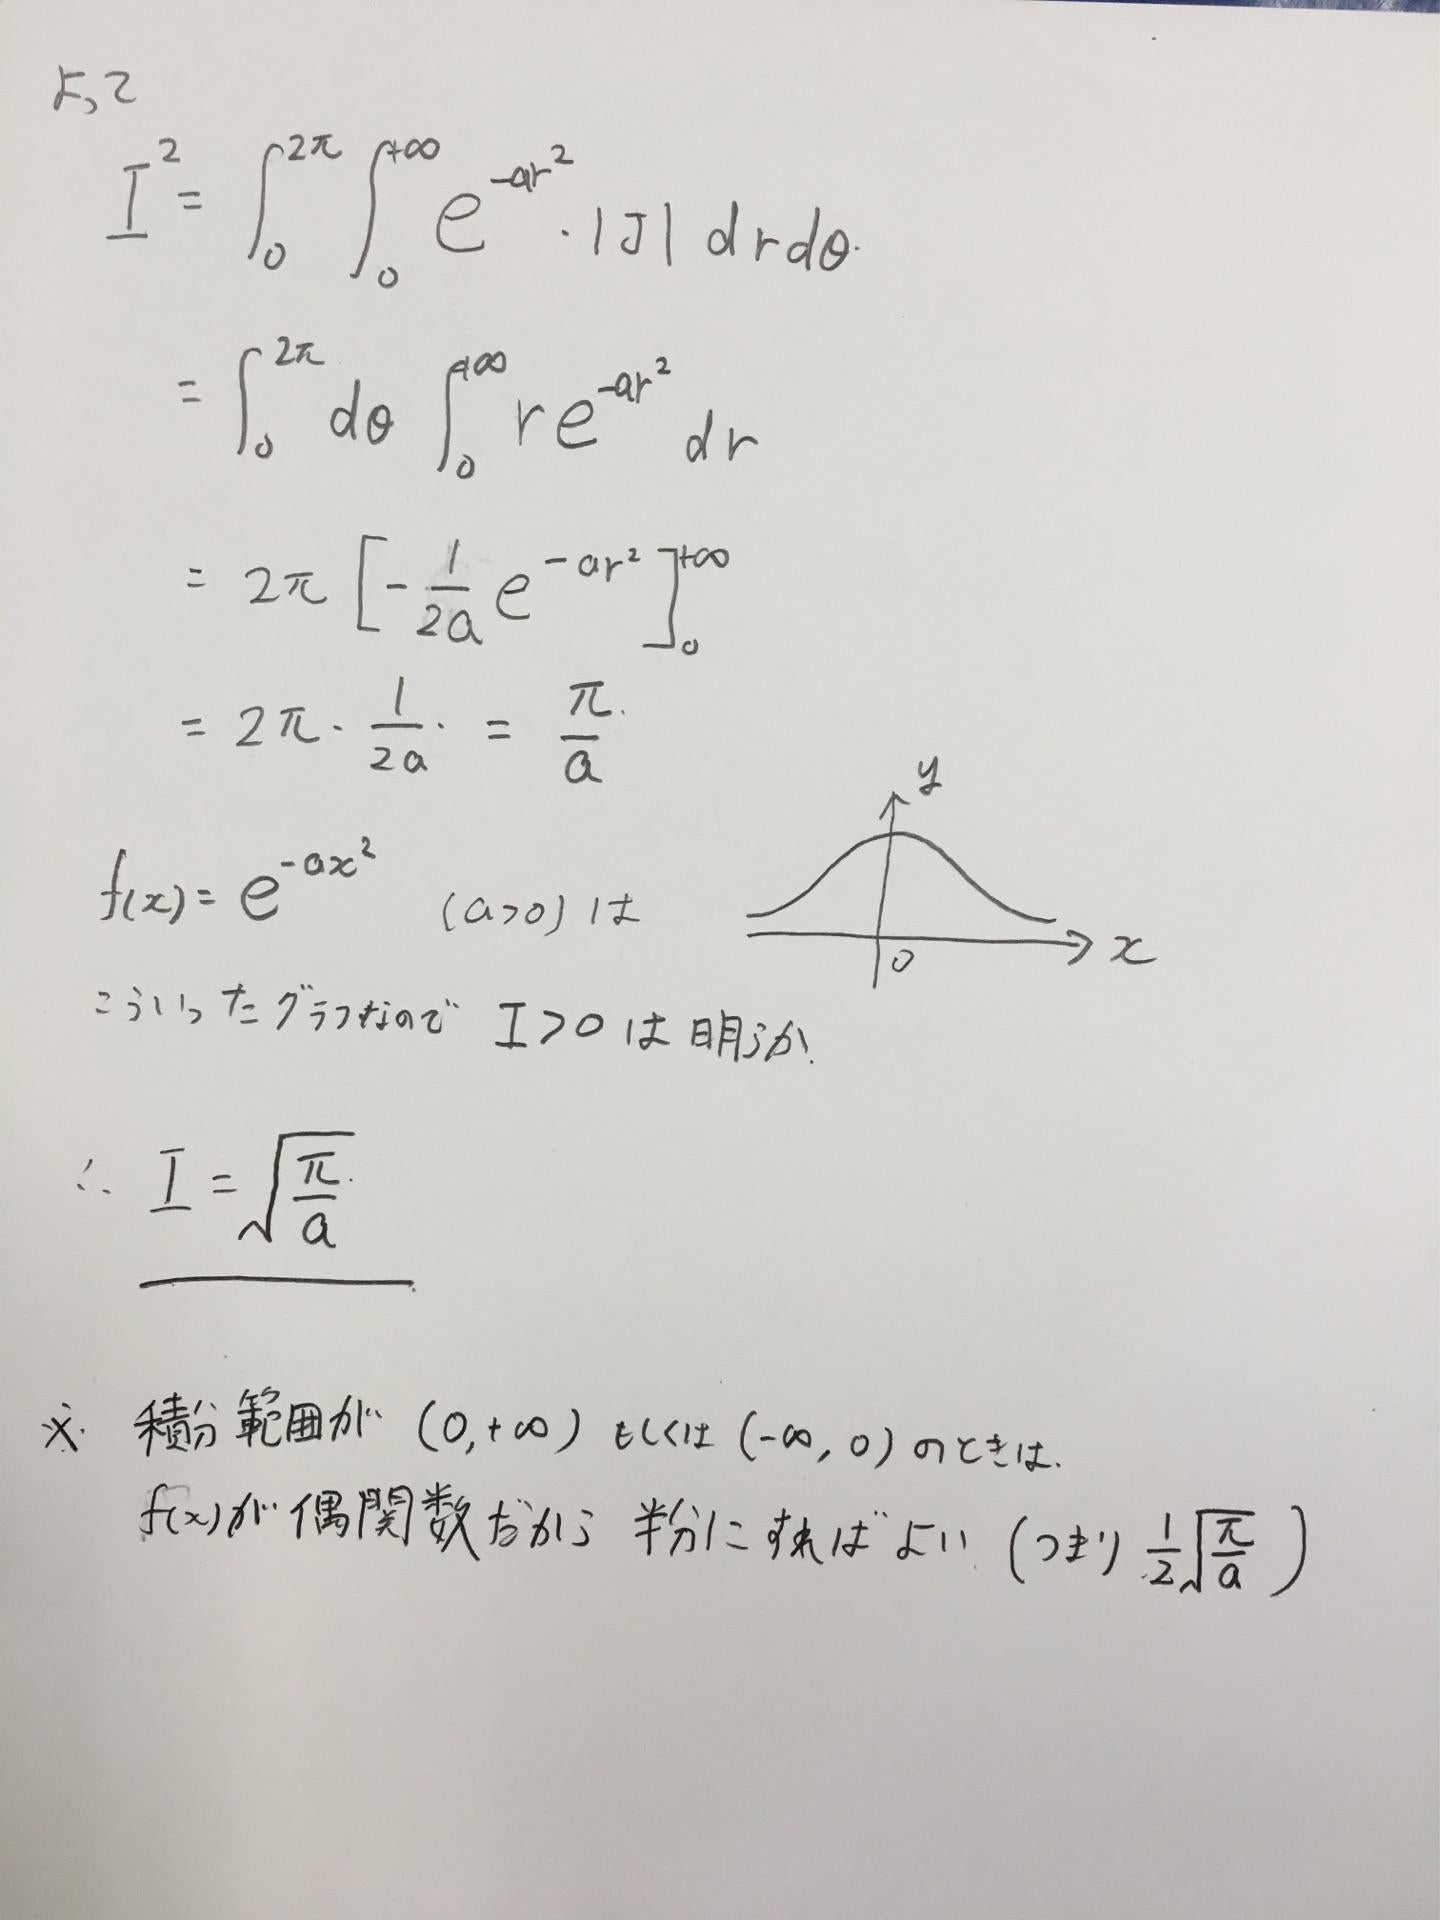 よって
I² = ∫₀^{2π} ∫₀^{+∞} e^{-ar²} · |J| dr dθ.
= ∫₀^{2π} dθ ∫₀^{+∞} r e^{-ar²} dr
= 2π [ -\frac{1}{2a} e^{-ar²} ]₀^{+∞}
= 2π · \frac{1}{2a} · = \frac{π}{a}
y
x
0
f(x) = e^{-ax²} (a>0) は
こういったグラフなので I>0 は明らか.
∴ I = \sqrt{\frac{π}{a}}
※ 積分範囲が (0,+∞) もしくは (-∞,0) のときは.
f(x)が偶関数だから 半分にすればよい (つまり \frac{1}{2}\sqrt{\frac{π}{a}} )